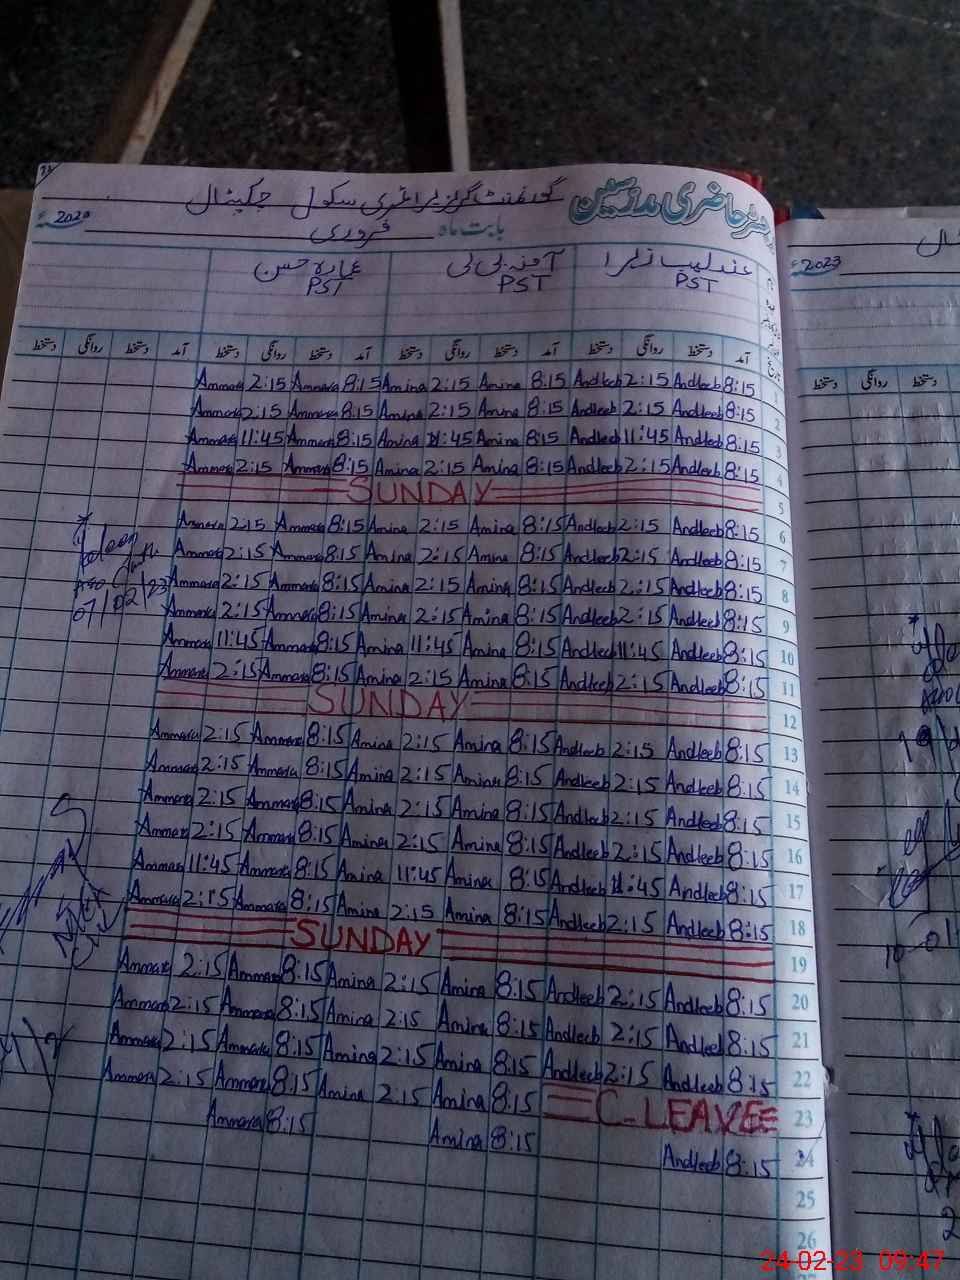 رجسٹر حاضری مدرسین گورنمنٹ گرلز پرائمری سکول
بابت ماہ فروری 2020ء
عندلیب زہرا آمنہ بی بی عمارہ حسن
PST PST PST
آمد دستخط روانگی دستخط آمد دستخط روانگی دستخط آمد دستخط روانگی دستخط آمد دستخط روانگی دستخط
1 8:15 Andleeb 2:15 Andleeb 8:15 Amina 2:15 Amina 8:15 Ammara 2:15 Ammara
2 8:15 Andleeb 2:15 Andleeb 8:15 Amina 2:15 Amina 8:15 Ammara 2:15 Ammara
3 8:15 Andleeb 11:45 Andleeb 8:15 Amina 11:45 Amina 8:15 Ammara 11:45 Ammara
4 8:15 Andleeb 2:15 Andleeb 8:15 Amina 2:15 Amina 8:15 Ammara 2:15 Ammara
5 SUNDAY
6 8:15 Andleeb 2:15 Andleeb 8:15 Amina 2:15 Amina 8:15 Ammara 2:15 Ammara
7 8:15 Andleeb 2:15 Andleeb 8:15 Amina 2:15 Amina 8:15 Ammara 2:15 Ammara
8 8:15 Andleeb 2:15 Andleeb 8:15 Amina 2:15 Amina 8:15 Ammara 2:15 Ammara
9 8:15 Andleeb 2:15 Andleeb 8:15 Amina 2:15 Amina 8:15 Ammara 2:15 Ammara
10 8:15 Andleeb 11:45 Andleeb 8:15 Amina 11:45 Amina 8:15 Ammara 11:45 Ammara
11 8:15 Andleeb 2:15 Andleeb 8:15 Amina 2:15 Amina 8:15 Ammara 2:15 Ammara
12 SUNDAY
13 8:15 Andleeb 2:15 Andleeb 8:15 Amina 2:15 Amina 8:15 Ammara 2:15 Ammara
14 8:15 Andleeb 2:15 Andleeb 8:15 Amina 2:15 Amina 8:15 Ammara 2:15 Ammara
15 8:15 Andleeb 2:15 Andleeb 8:15 Amina 2:15 Amina 8:15 Ammara 2:15 Ammara
16 8:15 Andleeb 2:15 Andleeb 8:15 Amina 2:15 Amina 8:15 Ammara 2:15 Ammara
17 8:15 Andleeb 11:45 Andleeb 8:15 Amina 11:45 Amina 8:15 Ammara 11:45 Ammara
18 8:15 Andleeb 2:15 Andleeb 8:15 Amina 2:15 Amina 8:15 Ammara 2:15 Ammara
19 SUNDAY
20 8:15 Andleeb 2:15 Andleeb 8:15 Amina 2:15 Amina 8:15 Ammara 2:15 Ammara
21 8:15 Andleeb 2:15 Andleeb 8:15 Amina 2:15 Amina 8:15 Ammara 2:15 Ammara
22 8:15 Andleeb 2:15 Andleeb 8:15 Amina 2:15 Amina 8:15 Ammara 2:15 Ammara
23 C-LEAVE 8:15 Amina 2:15 Amina 8:15 Ammara 2:15 Ammara
24 8:15 Andleeb 8:15 Amina 8:15 Ammara
25
26
07/02/23
2023ء
دستخط روانگی دستخط
24-02-23 09:47